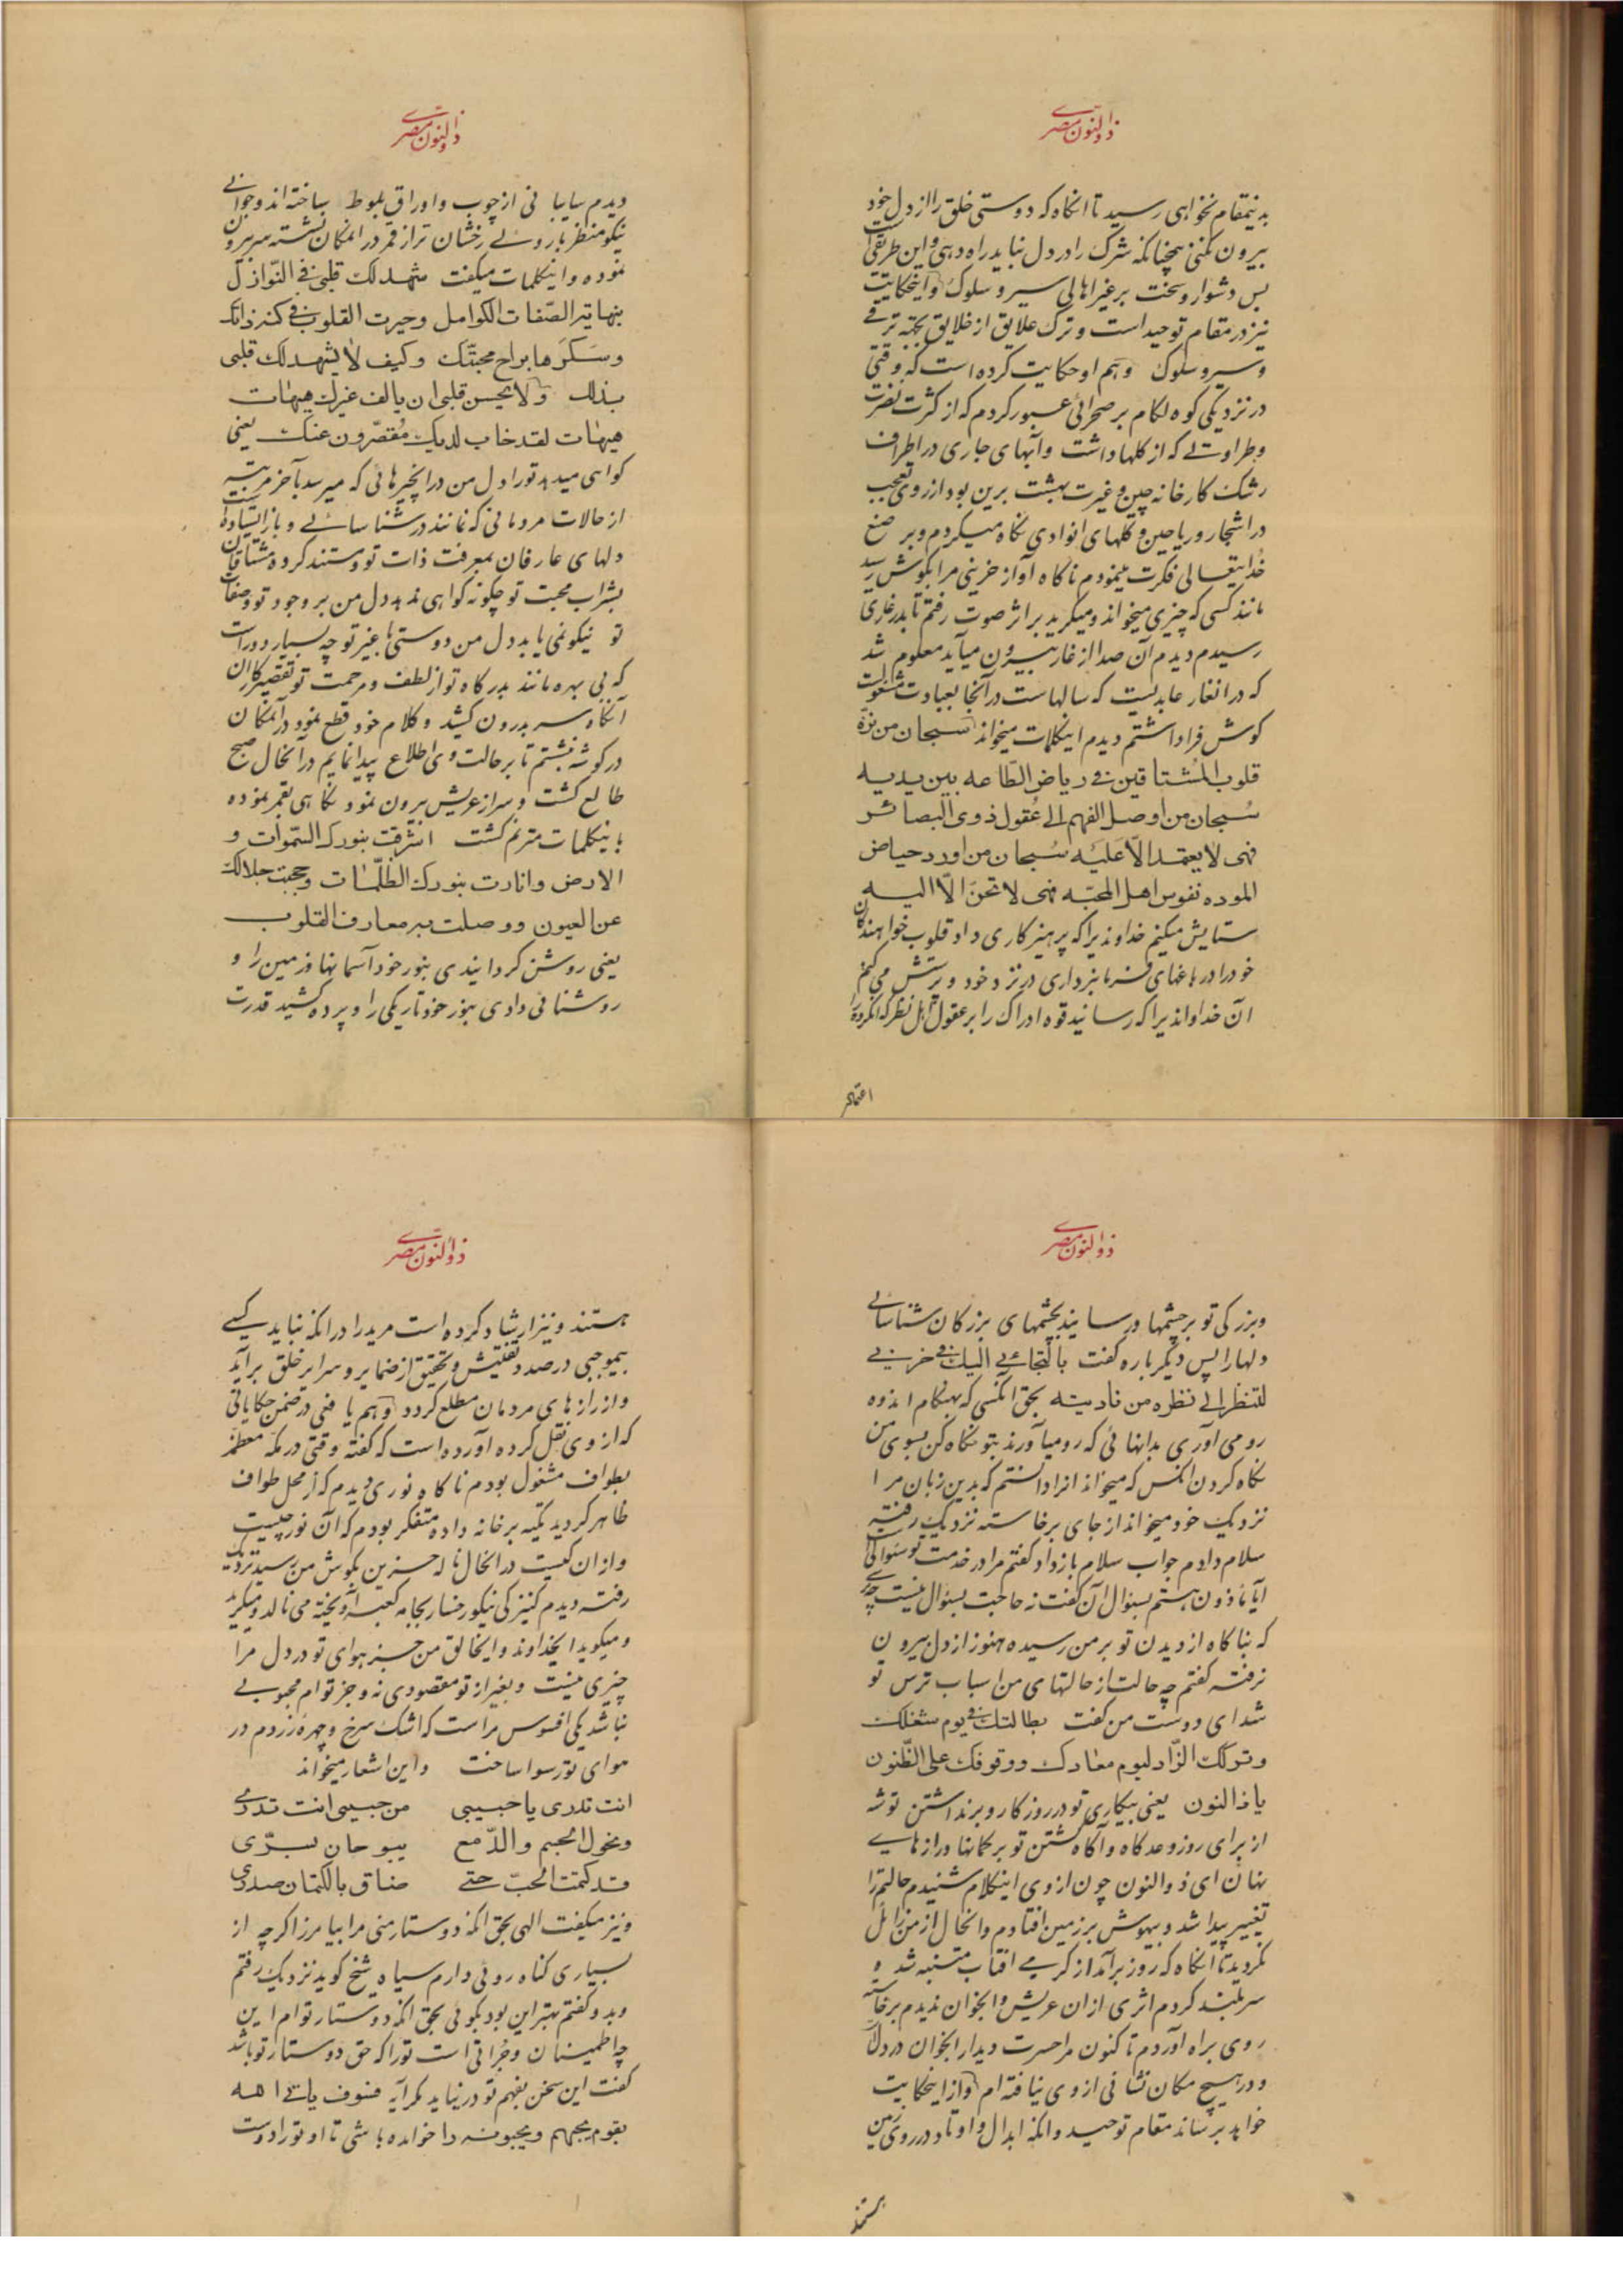 ذوالنون مصری
بدینمقام نخواهی رسید تا انکاه که دوستی خلق را از دل خود
بیرون نکنی همچنانکه شرک را در دل نباید راه دهی و این طریقی است
بس دشوار و سخت بر غیر اهالی سیر و سلوک و اینحکایت
نیز در مقام توحید است و ترک علایق از خلایق بجهته ترقی
و سیر و سلوک وهم او حکایت کرده است که وقتی
در نزدیکی کوه لکام بر صحرائی عبور کردم که از کثرت نضرت
و طراوتی که از کلها داشت و آبهای جاری در اطراف
رشک کارخانه چین و غیرت بهشت برین بود از روی تعجب
در اشجار و ریاحین و کلهای انوادی نکاه میکردم و بر صنع
خدایتعالی فکرت مینمودم ناکاه آواز حزینی مرا بکوش رسید
مانند کسی که چیزی میخواند و میکرید بر اثر صوت رفتم تا بدر غاری
رسیدم دیدم آن صدا از غار بیرون میآید معلوم شد
که در انغار عابدیست که سالهاست در آنجا بعبادت مشغولست
کوش فرا داشتم دیدم اینکلمات میخواند سبحان من نزه
قلوب المشتاقین فی ریاض الطاعه بین یدیه
سبحان من اوصل الفهم الی عقول ذوی البصائر
فهی لا یعتمد الا علیه سبحان من اورد حیاض
الموده نفوس اهل المحبه فهی لا تحن الا الیه
ستایش میکنم خداوندیرا که پرهیزکاری داد قلوب خواهندکان
خود را در باغهای فرمانبرداری در نزد خود و پرستش می کنم
ان خداواندیرا که رسانید قوه ادراک را بر عقول اهل نظر که انکروه را
اعتماد
ذوالنون مصری
دیدم سایبانی از چوب و اوراق بلوط ساخته اند و جوانی
نیکو منظر با روئی رخشان تر از قمر در انمکان نشسته سر بیرون
نموده و اینکلمات میکفت شهد لک قلبی فی النوازل
بنهایة الصفات الکوامل و حیرت القلوب فی کنه ذاتک
و سکرها براح محبتک و کیف لا یشهد لک قلبی
بذلک ولا یحسن قلبی ان یالف غیرک هیهات
هیهات لقد خاب لدیک مقصرون عنک یعنی
کواهی میدهد تو را دل من در انچیزهائی که میرسد بآخر مرتبه
از حالات مردمانی که نمانند در شناسائی و باز ایستاده است
دلهای عارفان بمعرفت ذات تو و مستند کروه مشتاقان
بشراب محبت تو چکونه کواهی ندهد دل من بر وجود تو و صفات
تو نیکو نمی یابد دل من دوستی با غیر تو چه بسیار دور است
که بی بهره مانند بدرکاه تو از لطف و مرحمت تو تقصیرکاران
آنکاه سر بدرون کشید و کلام خود قطع نمود در آنمکان
در کوشه نشستم تا بر حالت وی اطلاع پیدا نمایم در آنحال صبح
طالع کشت و سر از عریش بیرون نمود نکاهی بقمر نموده
باینکلمات مترنم کشت اشرقت بنورک السموات و
الارض و انارت بنورک الظلمات و حجبت جلالک
عن العیون و وصلت به معارف القلوب
یعنی روشن کردانیدی بنور خود آسمانها و زمین را و
روشنائی دادی بنور خود تاریکی را و پرده کشید قدرت
ذوالنون مصری
و بزرکی تو بر چشمها و رسانید بچشمهای بزرکان شناسائی
دلها را پس دیکر باره کفت بالتجائی الیک فی حزنی
لتنظر الی نظره من نادیته بحق انکسی که بهنکام اندوه
رو می آوری بدانهائی که رو میآورند بتو نکاه کن بسوی من
نکاه کردن انکس که میخواند انرا دانستم که بدین زبان مرا
نزدیک خود میخواند از جای برخاسته نزدیک رفته
سلام دادم جواب سلام باز داد کفتم مرا در خدمت تو سئوالی
آیا ماذون هستم بسئوال آن کفت نه حاجت بسئوال نیست چه ترسی
که بناکاه از دیدن تو بر من رسیده هنوز از دل بیرون
نرفته کفتم چه حالت از حالتهای من اسباب ترس تو
شد ای دوست من کفت بطالتک فی یوم شغلک
و ترکک الزاد لیوم معادک و وقوفک علی الظنون
یا ذالنون یعنی بیکاری تو در روز کار و برنداشتن توشه
از برای روز وعدکاه و آکاه کشتن تو بر کمانها و رازهای
نهان ای ذوالنون چون از وی اینکلام شنیدم حالتم را
تغییر پیدا شد و بیهوش بر زمین افتادم و انحال از من زایل
نکردید تا انکاه که روز برآمد از کرمی افتاب متنبه شده
سر بلند کردم اثری از ان عریش و انجوان ندیدم برخاسته
روی براه آوردم تا کنون مرا حسرت دیدار انجوان در دل
و در هیچ مکان نشانی از وی نیافته ام و از اینحکایت
خواهد برساند مقام توحید و انکه ابدال و اوتاد در روی زمین
هستند
ذوالنون مصری
هستند و نیز ارشاد کرده است مرید را در انکه نباید کسی
بیموجبی در صدد تفتیش و تحقیق از ضمایر و سرایر خلق برآید
و از رازهای مردمان مطلع کردد وهم یافعی در ضمن حکایاتی
که از وی نقل کرده آورده است که کفته وقتی در مکه معظمه
بطواف مشغول بودم ناکاه نوری دیدم که از محل طواف
ظاهر کردید تکیه بر خانه داده متفکر بودم که آن نور چیست
و از ان کیست در انحال ناله حزین بکوش من رسید نزدیک
رفته دیدم کنیزکی نیکو رخسار بجامه کعبه آویخته می نالد و میکرید
و میکوید ایخداوند و ایخالق من جز هوای تو در دل مرا
چیزی نیست و بغیر از تو مقصودی نه و جز توام محبوبی
نباشد یکی افسوس مراست که اشک سرخ و چهره زردم در
هوای تو رسوا ساخت و این اشعار میخواند
انت تدری یا حبیبی من حبیبی انت تدری
و نحول الجسم و الدمع یبوحان بسری
قد کتمت الحب حتی ضاق بالکتمان صدری
و نیز میکفت الهی بحق انکه دوستار منی مرا بیامرز اکر چه از
بسیاری کناه روئی دارم سیاه شیخ کوید نزدیک رفتم
و بدو کفتم بهتر این بود بکوئی بحق انکه دوستار توام این
چه اطمینان و جرأتی است تو را که حق دوستار تو باشد
کفت این سخن بفهم تو در نیاید مکر آیه فسوف یاتی الله
بقوم یحبهم و یحبونه را خوانده باشی تا او تو را دوست